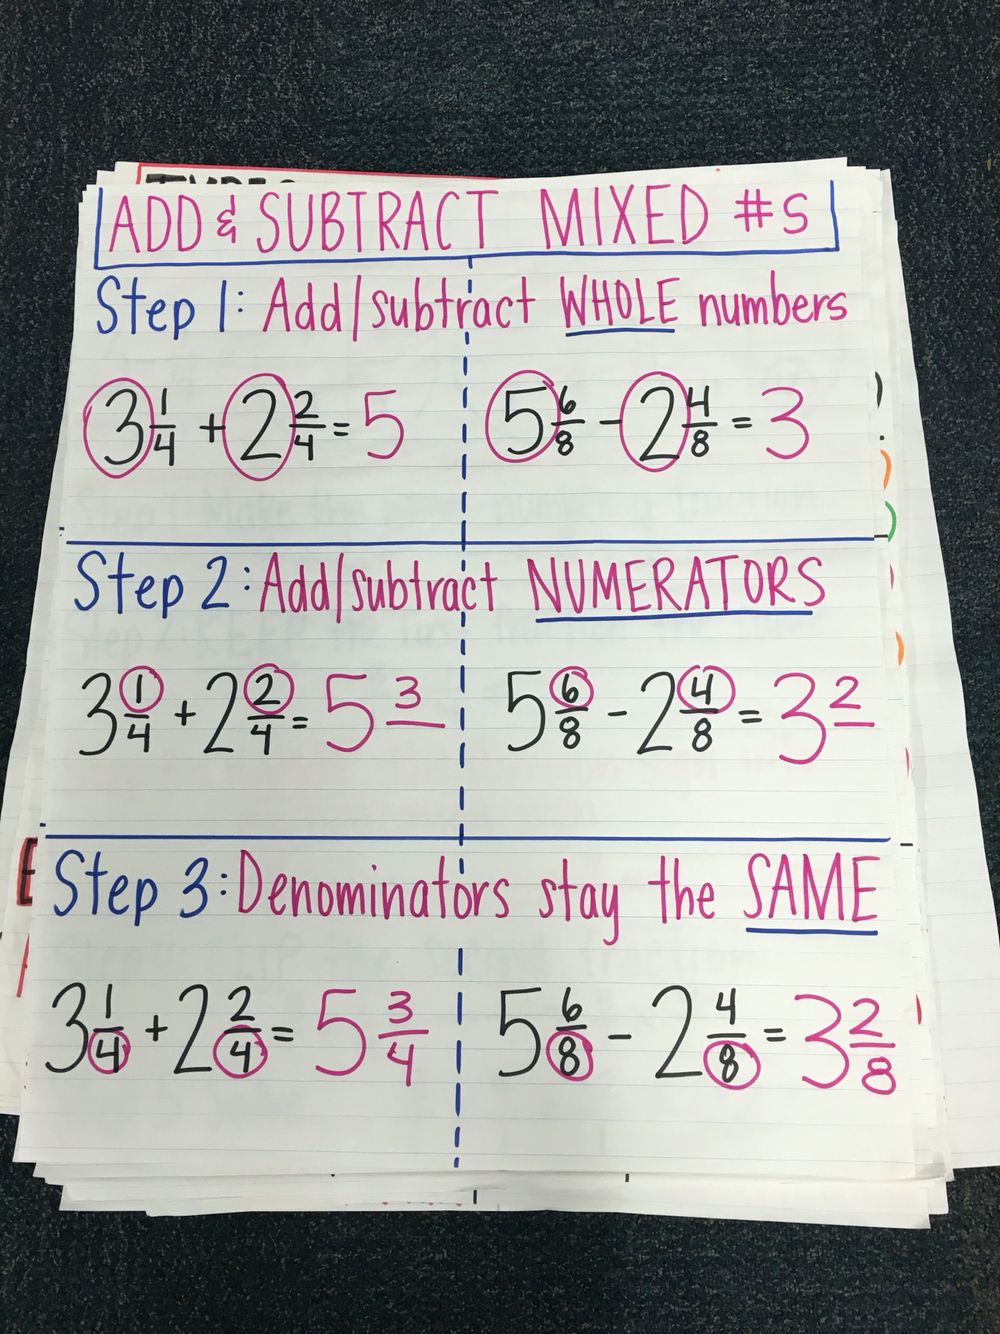 ADD & SUBTRACT MIXED #S
Step 1: Add/subtract WHOLE numbers
3 1/4 + 2 2/4 = 5
5 6/8 - 2 4/8 = 3
Step 2: Add/subtract NUMERATORS
3 1/4 + 2 2/4 = 5 3/
5 6/8 - 2 4/8 = 3 2/
Step 3: Denominators stay the SAME
3 1/4 + 2 2/4 = 5 3/4
5 6/8 - 2 4/8 = 3 2/8